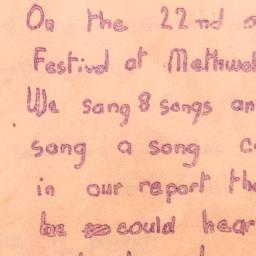 On the 22nd
Festival at Methwol
We sang 8 songs an
sang a song c
in our report th
be could hear